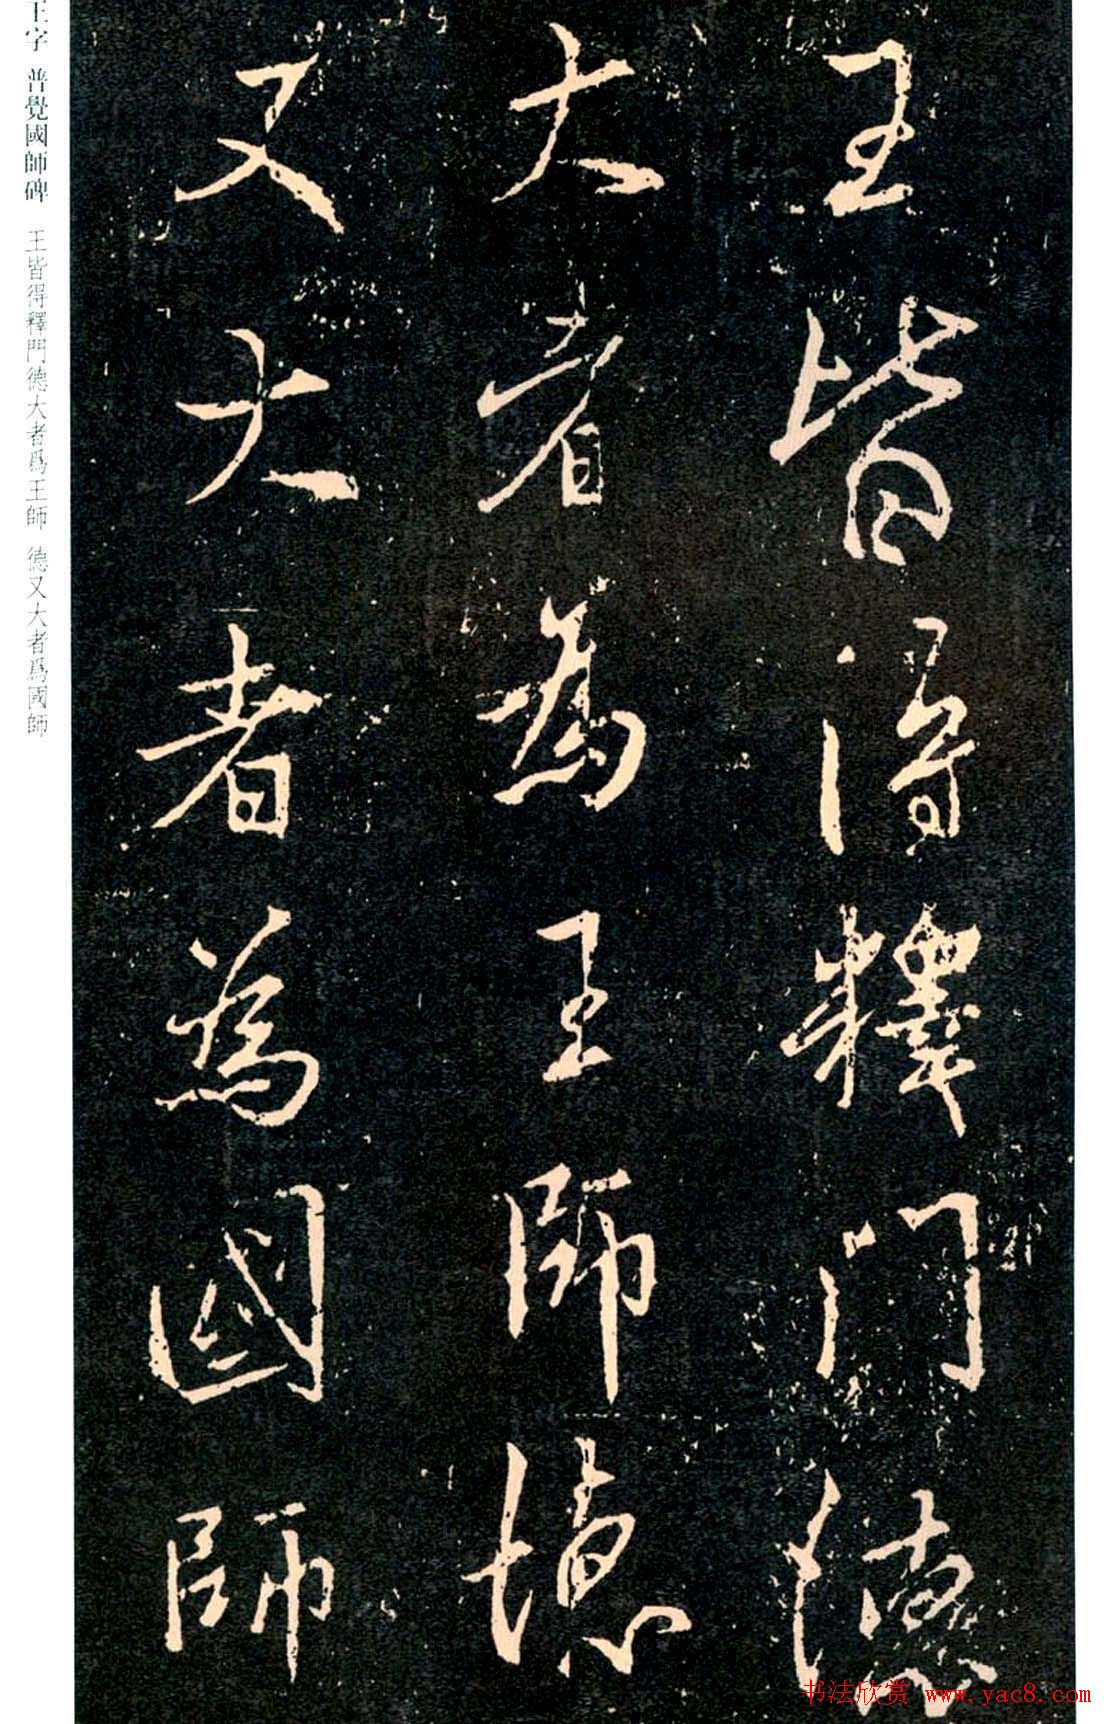 王皆得釋門德
大者為王師德
又大者為國師
王字 普覺國師碑 王皆得釋門德大者爲王師 德又大者爲國師
书法欣赏 www.yac8.com